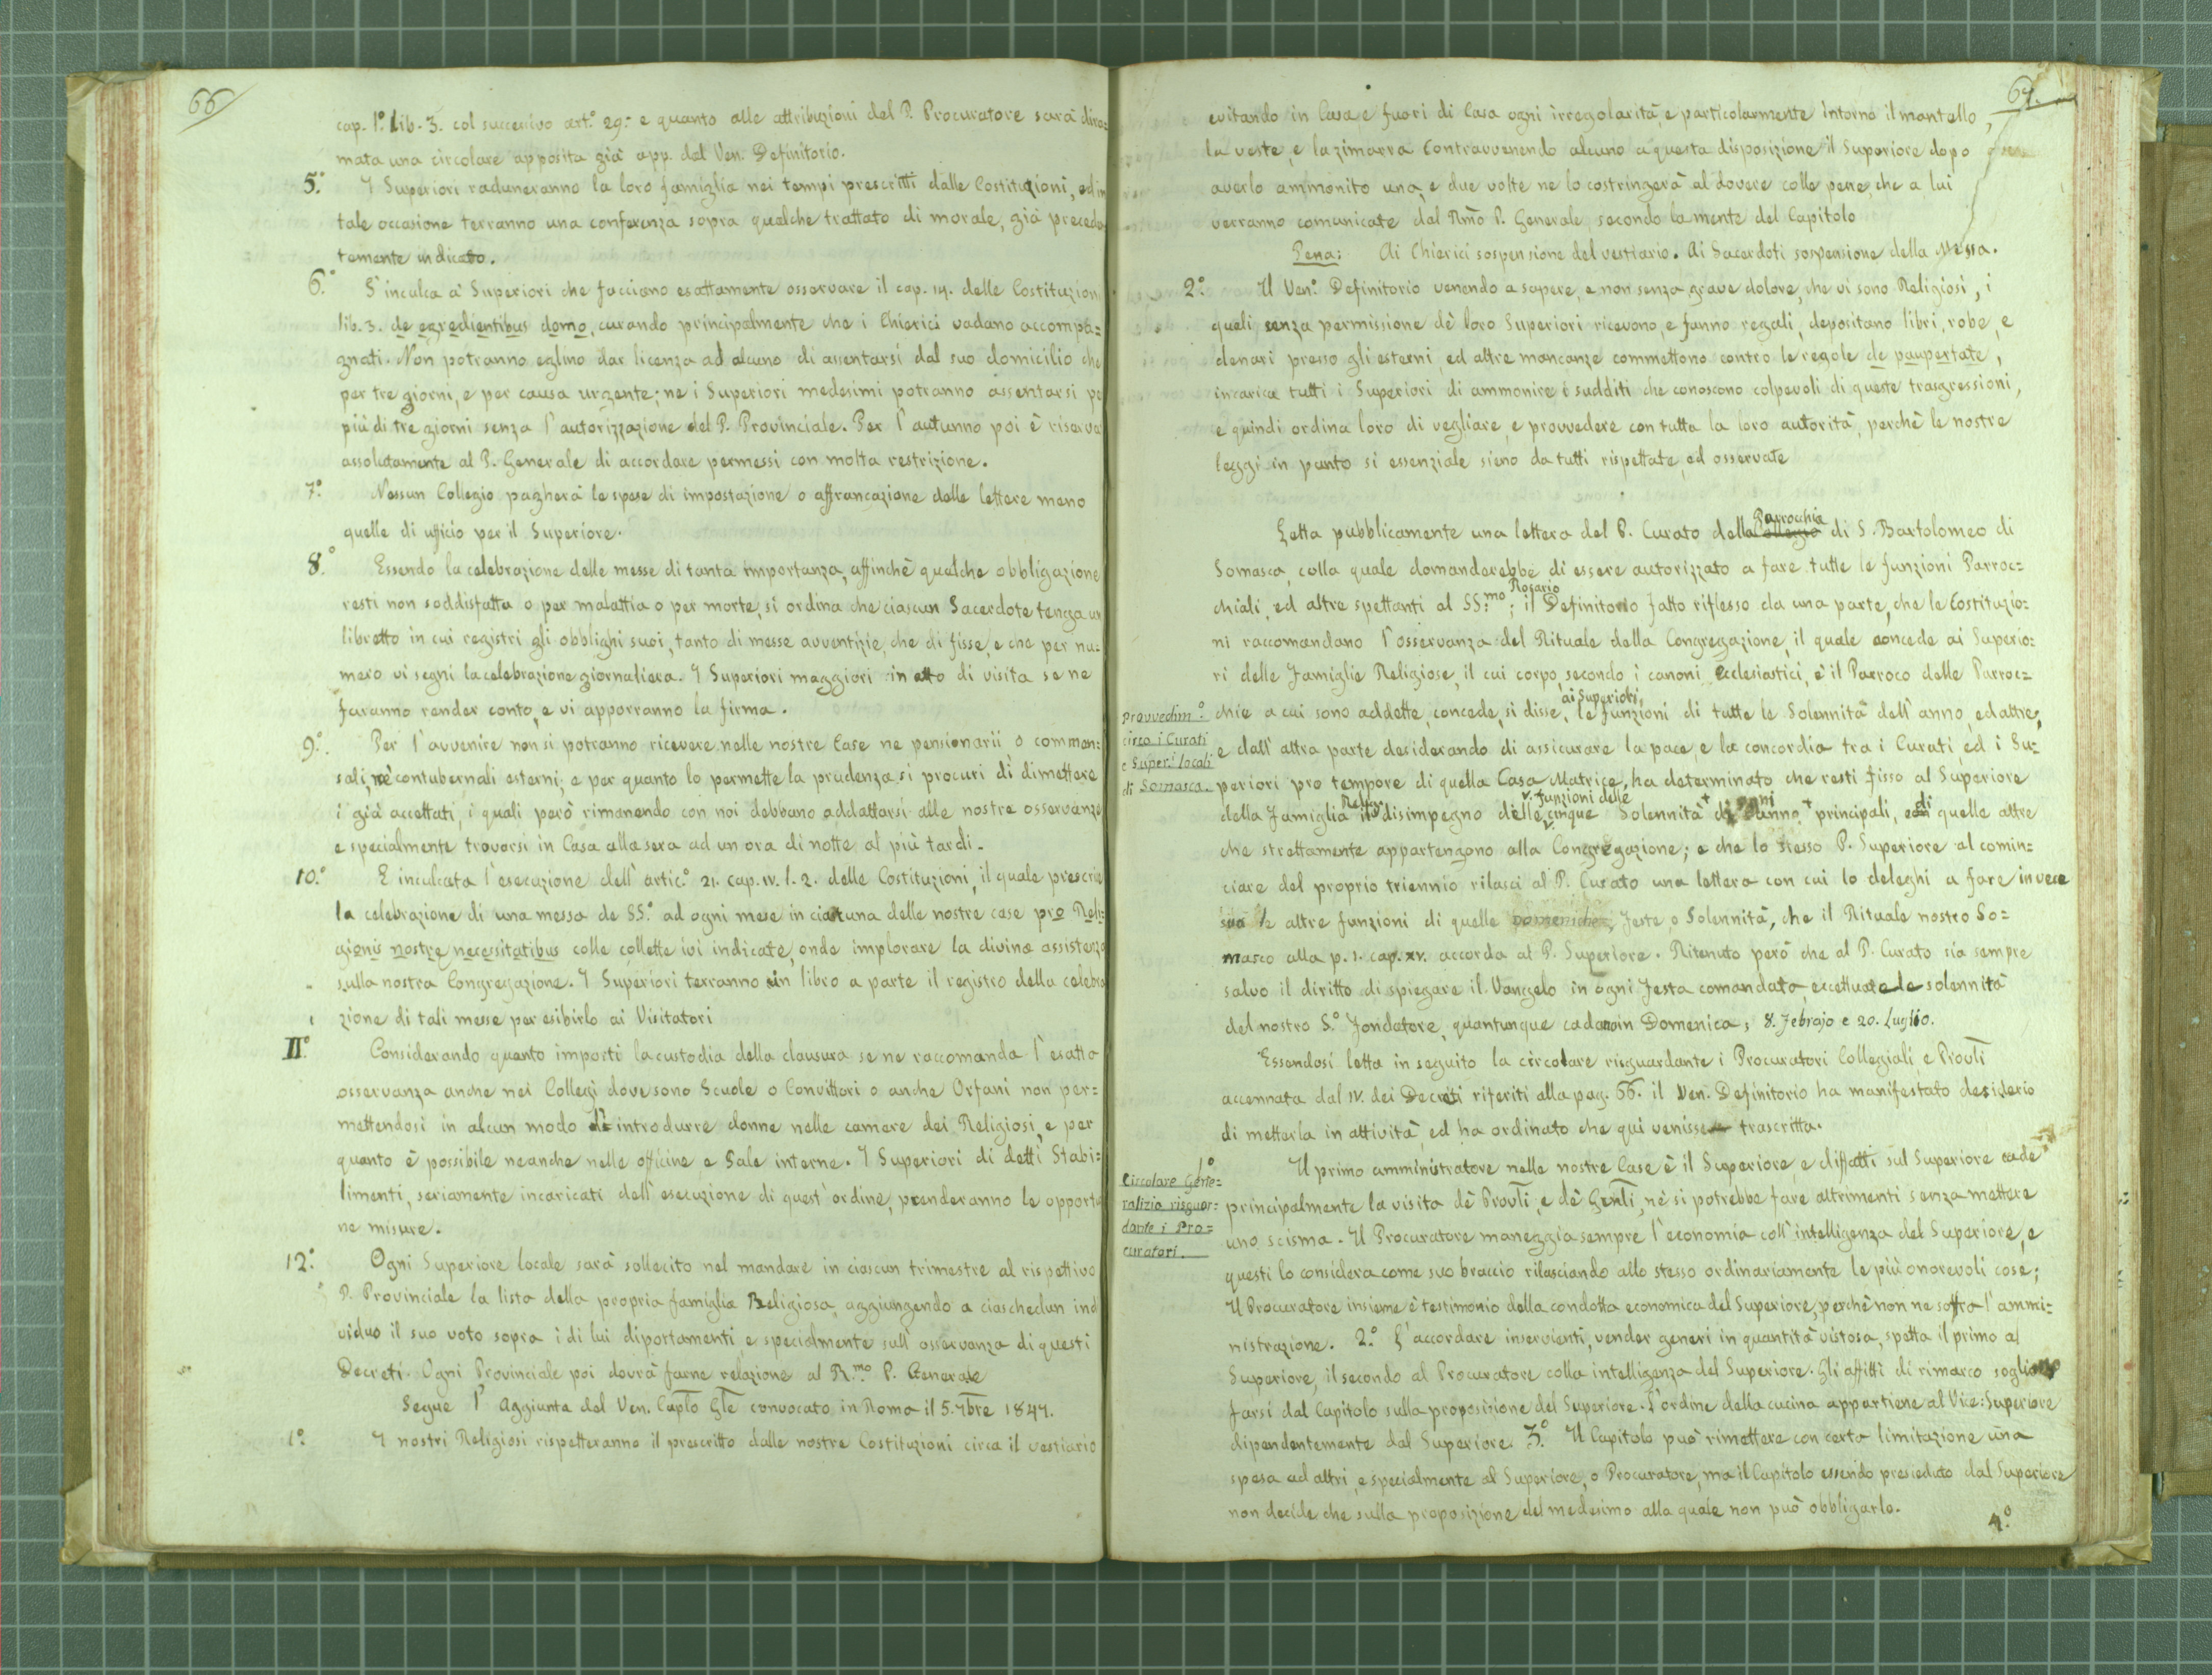 66
cap. 1º. Lib. 3. col successivo art.º 29.- e quanto alle attribuzioni del P. Procuratore sarà dira=
mata una circolare apposita già app. dal Ven. Definitorio.
5.º I Superiori raduneranno la loro famiglia nei tempi prescritti dalle Costituzioni, ed in
tale occasione terranno una conferenza sopra qualche trattato di morale, già preceden
temente indicato.
6.º S'inculca a' Superiori che facciano esattamente osservare il cap. 14. delle Costituzion
lib. 3. de egredientibus domo, curando principalmente che i Chierici vadano accompa=
gnati. Non potranno eglino dar licenza ad alcuno di assentarsi dal suo domicilio che
per tre giorni, e per causa urgente; ne i Superiori medesimi potranno assentarsi pe
più di tre giorni senza l'autorizzazione del P. Provinciale. Per l'autunno poi è riserva
assolutamente al P. Generale di accordare permessi con molta restrizione.
7.º Nessun Collegio pagherà le spese di impostazione o affrancazione delle lettere meno
quelle di ufficio per il Superiore.
8.º Essendo la celebrazione delle messe di tanta importanza, affinchè qualche obbligazione
resti non soddisfatta o per malattia o per morte, si ordina che ciascun Sacerdote tenga un
libretto in cui registri gli obblighi suoi, tanto di messe avventizie, che di fisse, e che per nu=
mero vi segni la celebrazione giornaliera. I Superiori maggiori in atto di visita se ne
faranno render conto, e vi apporranno la firma.
9.º Per l'avvenire non si potranno ricevere nelle nostre Case ne pensionarii o commen=
sali, nè contubernali esterni; e per quanto lo permette la prudenza si procuri di dimettere
i già accettati, i quali però rimanendo con noi debbano addattarsi alle nostre osservanze
e specialmente trovarsi in Casa alla sera ad un ora di notte al più tardi.
10.º E inculcata l'esecuzione dell'artic.º 21. cap. IV. l. 2. delle Costituzioni, il quale prescrive
la celebrazione di una messa de SS.º ad ogni mese in ciascuna delle nostre case pro Reli=
gionis nostre necessitatibus colle collette ivi indicate, onde implorare la divina assistenza
sulla nostra Congregazione. I Superiori terranno in libro a parte il registro della celebra
zione di tali messe per esibirlo ai Visitatori
II.º Considerando quanto importi la custodia della clausura se ne raccomanda l'esatta
osservanza anche nei Collegi dove sono Scuole o Convittori o anche Orfani non per=
mettendosi in alcun modo di introdurre donne nelle camere dei Religiosi, e per
quanto è possibile neanche nelle officine e Sale interne. I Superiori di detti Stabi=
limenti, seriamente incaricati dell'esecuzione di quest'ordine, prenderanno le opportu
ne misure.
12.º Ogni Superiore locale sarà sollecito nel mandare in ciascun trimestre al rispettivo
P. Provinciale la lista della propria famiglia Religiosa, aggiungendo a ciaschedun indi
viduo il suo voto sopra i di lui diportamenti e specialmente sull'osservanza di questi
Decreti. Ogni Provinciale poi dovrà farne relazione al R.mo P. Generale
Segue l'Aggiunta del Ven. Caplo Gle convocato in Roma il 5. 7bre 1847.
1.º I nostri Religiosi rispetteranno il prescritto dalle nostre Costituzioni circa il vestiario
67.
evitando in Casa e fuori di Casa ogni irregolarità, e particolarmente intorno il mantello,
la veste, e la zimarra Contravvenendo alcuno a questa disposizione il Superiore dopo
averlo ammonito una, e due volte ne lo costringerà al dovere colle pene, che a lui
verranno comunicate dal Rmo P. Generale, secondo la mente del Capitolo
Pena: Ai Chierici sospensione del vestiario. Ai Sacerdoti sospensione della Messa.
2.º Il Ven.º Definitorio venendo a sapere, e non senza grave dolore, che vi sono Religiosi, i
quali senza permissione dè loro Superiori ricevono, e fanno regali, depositano libri, robe, e
denari presso gli esterni, ed altre mancanze commettono contro le regole de paupertate,
incarica tutti i Superiori di ammonire i sudditi che conoscono colpevoli di queste trasgressioni,
e quindi ordina loro di vegliare, e provvedere con tutta la loro autorità, perchè le nostre
leggi in punto si essenziale sieno da tutti rispettate, ed osservate
Letta pubblicamente una lettera del P. Curato della Collegio Parrocchia di S. Bartolomeo di
Somasca, colla quale domanderebbe di essere autorizzato a fare tutte le funzioni Parroc=
chiali, ed altre spettanti al SS.mo Rosario; il Definitorio fatto riflesso da una parte, che le Costituzio=
ni raccomandano l'osservanza del Rituale della Congregazione, il quale concede ai Superio=
ri delle Famiglie Religiose, il cui corpo, secondo i canoni ecclesiastici, è il Parroco delle Parroc=
chie a cui sono addette, concede, si disse, ai Superiori, le funzioni di tutte le Solennità dell'anno, ed altre,
Provvedim.º
circa i Curati
e Super.i locali
di Somasca.
e dall'altra parte desiderando di assicurare la pace, e la concordia tra i Curati, ed i Su=
periori pro tempore di quella Casa Matrice, ha determinato che resti fisso al Superiore
della Famiglia Relig.sa il disimpegno delle funzioni delle cinque Solennità di ogni anno principali, e di quelle altre
che strettamente appartengono alla Congregazione; e che lo stesso P. Superiore al comin=
ciare del proprio triennio rilasci al P. Curato una lettera con cui lo deleghi a fare in vece
sua le altre funzioni di quelle Domeniche, Feste, o Solennità, che il Rituale nostro So=
masco alla p. 1. cap. XV. accorda al P. Superiore. Ritenuto però che al P. Curato sia sempre
salvo il diritto di spiegare il Vangelo in ogni Festa comandata, eccettuate le solennità
del nostro S.º Fondatore, quantunque cadano in Domenica, 8. Febrajo e 20. Luglio.
Essendosi letta in seguito la circolare risguardante i Procuratori Collegiali e Provli
accennata dal IV. dei Decreti riferiti alla pag. 66. il Ven. Definitorio ha manifestato desiderio
di metterla in attività, ed ha ordinato che qui venisse trascritta.
Circolare Gene=
ralizia risguar=
dante i Pro=
curatori.
1º Il primo amministratore nelle nostre Case è il Superiore e diffatti sul Superiore cade
principalmente la visita dè Provli, e dè Genli, nè si potrebbe fare altrimenti senza mettere
uno scisma. Il Procuratore maneggia sempre l'economia coll'intelligenza del Superiore, e
questi lo considera come suo braccio rilasciando allo stesso ordinariamente le più onorevoli cose;
Il Procuratore insieme è testimonio della condotta economica del Superiore, perchè non ne soffra l'ammi=
nistrazione. 2.º L'accordare inservienti, vender generi in quantità vistosa, spetta il primo al
Superiore, il secondo al Procuratore colla intelligenza del Superiore. Gli affitti di rimarco sogliono
farsi dal Capitolo sulla proposizione del Superiore. L'ordine della cucina appartiene al Vice: Superiore
dipendentemente dal Superiore. 3.º Il Capitolo può rimettere con certa limitazione una
spesa ad altri, e specialmente al Superiore, o Procuratore, ma il Capitolo essendo presieduto dal Superiore
non decide che sulla proposizione del medesimo alla quale non può obbligarlo.
4.º